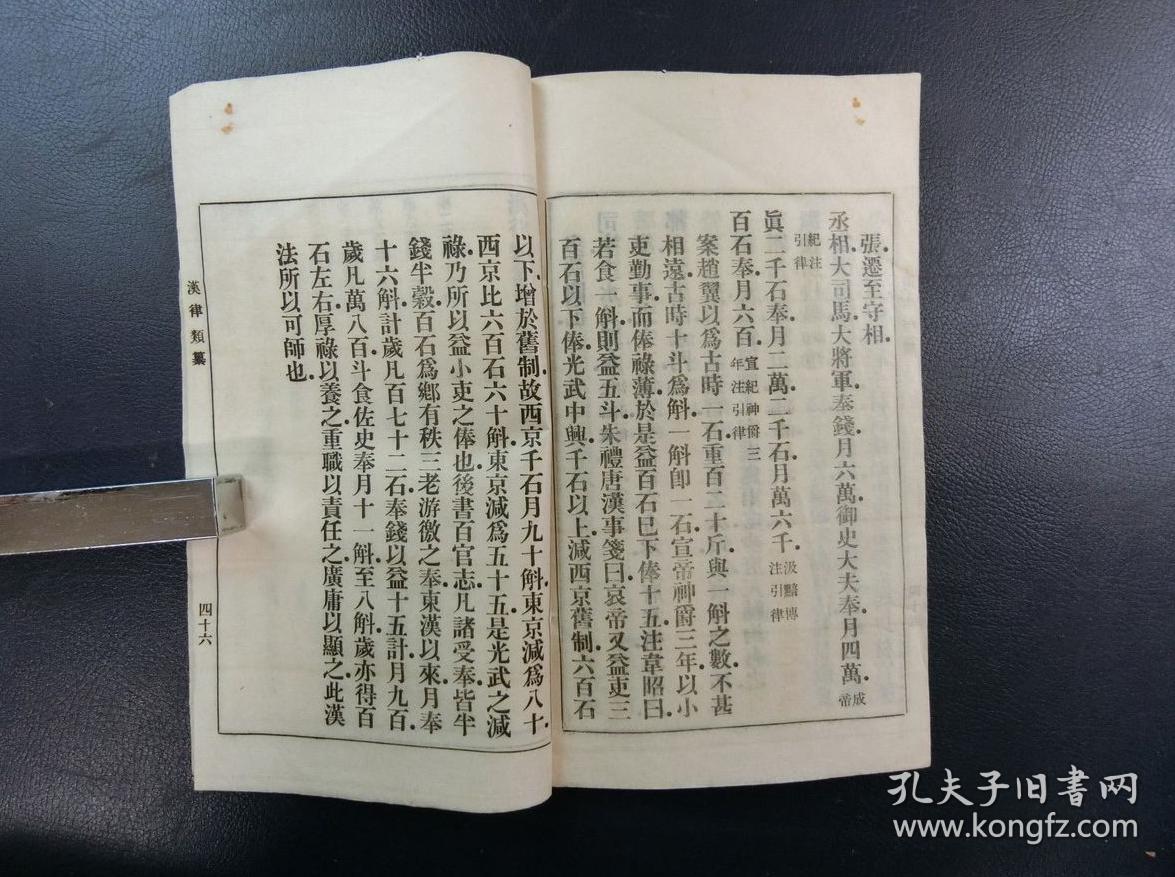 張遷至守相
丞相大司馬大將軍奉錢月六萬御史大夫奉月四萬成帝
紀注引律
眞二千石奉月二萬二千石月萬六千汲黯傳注引律
百石奉月六百宣紀神爵三年注引律
案趙翼以爲古時一石重百二十斤與一斛之數不甚
相遠古時十斗爲斛一斛卽一石宣帝神爵三年以小
吏勤事而俸祿薄於是益百石已下俸十五注韋昭曰
若食一斛則益五斗朱禮唐漢事箋曰哀帝又益吏三
百石以下俸光武中興千石以上減西京舊制六百石
以下增於舊制故西京千石月九十斛東京減爲八十
西京比六百石六十斛東京減爲五十五是光武之減
祿乃所以益小吏之俸也後書百官志凡諸受奉皆半
錢半穀百石爲鄉有秩三老游徼之奉東漢以來月奉
十六斛計歲凡百七十二石奉錢以益十五計月九百
歲凡萬八百斗食佐史奉月十一斛至八斛歲亦得百
石左右厚祿以養之重職以責任之廣庸以顯之此漢
法所以可師也
漢律類纂
四十六
孔夫子旧书网
www.kongfz.com